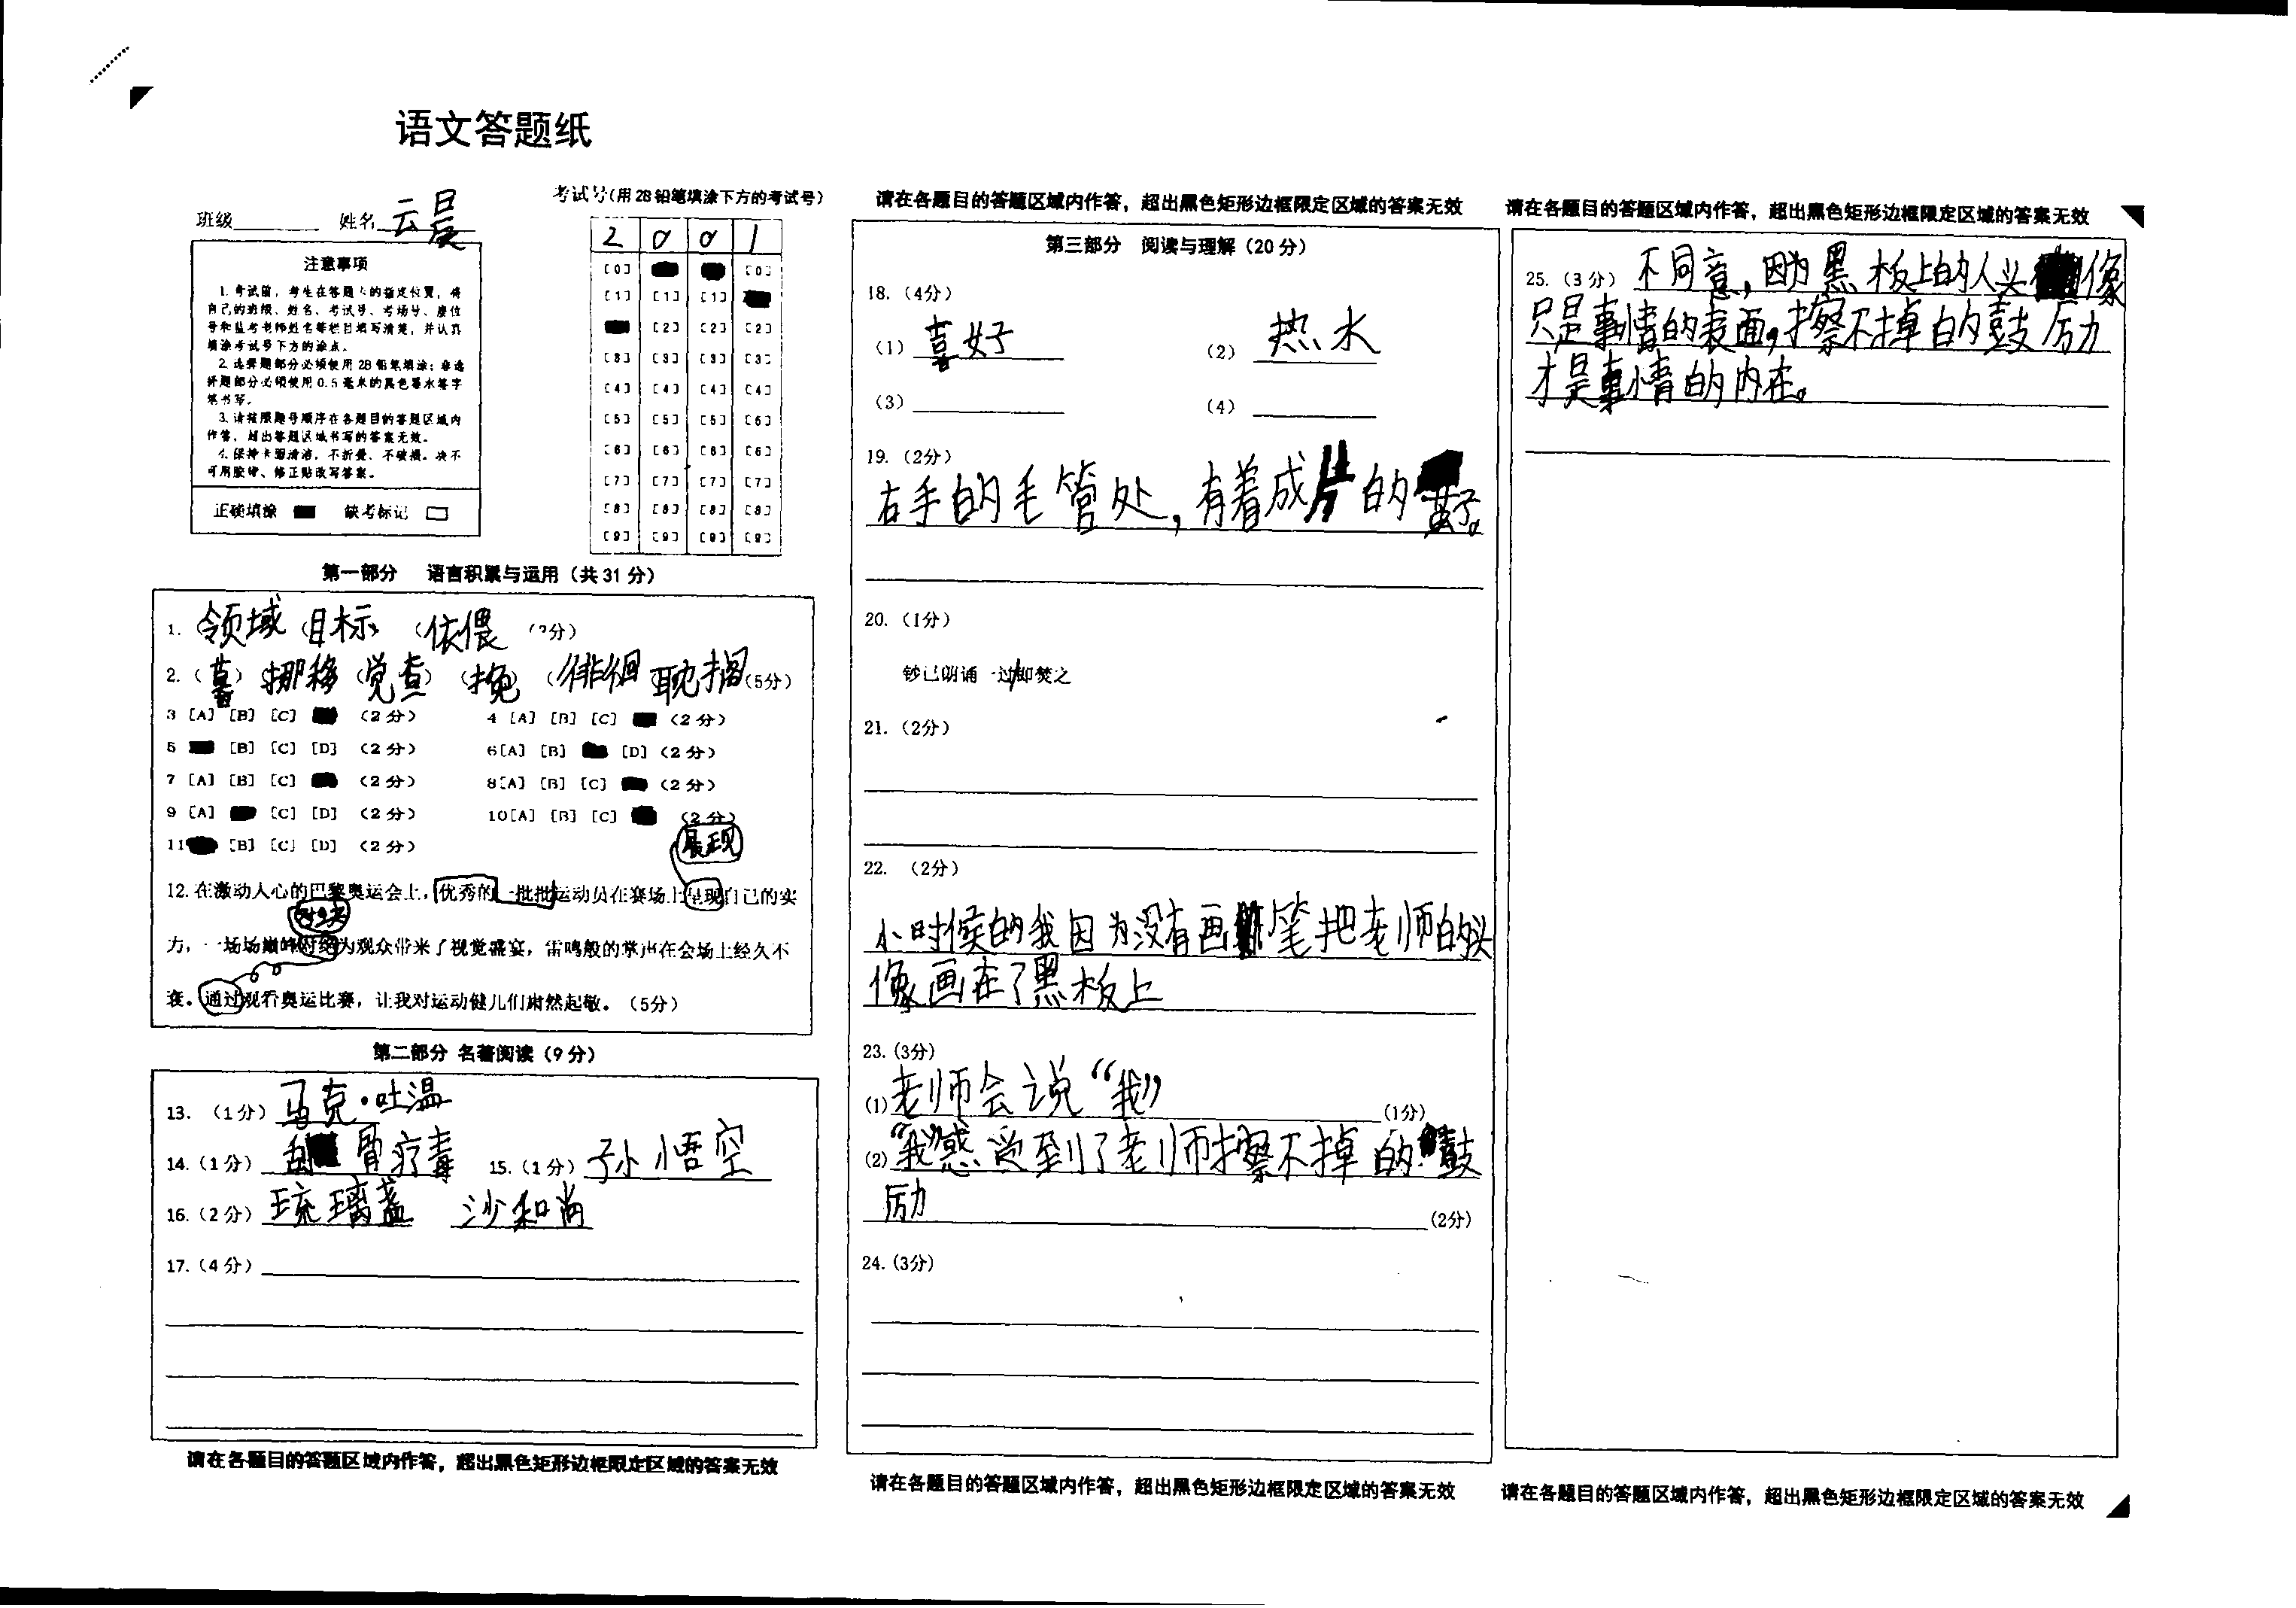 语文答题纸
班级 姓名 云晨
考试号(用2B铅笔填涂下方的考试号)
2 0 0 1
[0] [0]
[1] [1] [1]
[2] [2] [2]
[3] [3] [3] [3]
[4] [4] [4] [4]
[5] [5] [5] [5]
[6] [6] [6] [6]
[7] [7] [7] [7]
[8] [8] [8] [8]
[9] [9] [9] [9]
注意事项
1. 考试前，考生在答题卡的指定位置，将
自己的班级、姓名、考试号、考场号、座位
号和监考老师姓名等栏目填写清楚，并认真
填涂考试号下方的涂点。
2. 选择题部分必须使用2B铅笔填涂；非选
择题部分必须使用0.5毫米的黑色墨水签字
笔书写。
3. 请按照题号顺序在各题目的答题区域内
作答，超出答题区域书写的答案无效。
4. 保持卡面清洁，不折叠、不破损。决不
可用胶带、修正贴改写答案。
正确填涂 缺考标记
第一部分 语言积累与运用（共31分）
1. 领域 （目标） （依偎 （2分）
2.（ ） 挪移 （觉查） （挽） （徘徊 耽搁 (5分)
3 [A] [B] [C] （2分） 4 [A] [B] [C] （2分）
5 [B] [C] [D] （2分） 6[A] [B] [D]（2分）
7 [A] [B] [C] （2分） 8[A] [B] [C] （2分）
9 [A] [C] [D] （2分） 10[A] [B] [C] （2分）
11 [B] [C] [D] （2分）
展现
12. 在激动人心的巴黎奥运会上，优秀的一批批运动员在赛场上呈现自己的实
对决
力，一场场巅峰对绝为观众带来了视觉盛宴，雷鸣般的掌声在会场上经久不
衰。通过观看奥运比赛，让我对运动健儿们肃然起敬。（5分）
第二部分 名著阅读（9分）
13. （1分） 马克·吐温
14.（1分） 刮骨疗毒 15.（1分） 孙悟空
16.（2分） 琉璃盏 沙和尚
17.（4分）
请在各题目的答题区域内作答，超出黑色矩形边框限定区域的答案无效
请在各题目的答题区域内作答，超出黑色矩形边框限定区域的答案无效
第三部分 阅读与理解（20分）
18.（4分）
（1） 喜好 （2） 热水
（3） （4）
19.（2分）
右手的毛管处，有着成片的茧子。
20.（1分）
钞已朗诵一过/即焚之
21.（2分）
22. （2分）
小时候的我因为没有画笔把老师的头
像画在了黑板上
23. (3分)
(1) 老师会说“我” (1分)
(2) “我”感受到了老师擦不掉的鼓
励 (2分)
24. (3分)
请在各题目的答题区域内作答，超出黑色矩形边框限定区域的答案无效
请在各题目的答题区域内作答，超出黑色矩形边框限定区域的答案无效
25.（3分） 不同意，因为黑板上的人头像
只是事情的表面，擦不掉的鼓厉力
才是事情的内在。
请在各题目的答题区域内作答，超出黑色矩形边框限定区域的答案无效